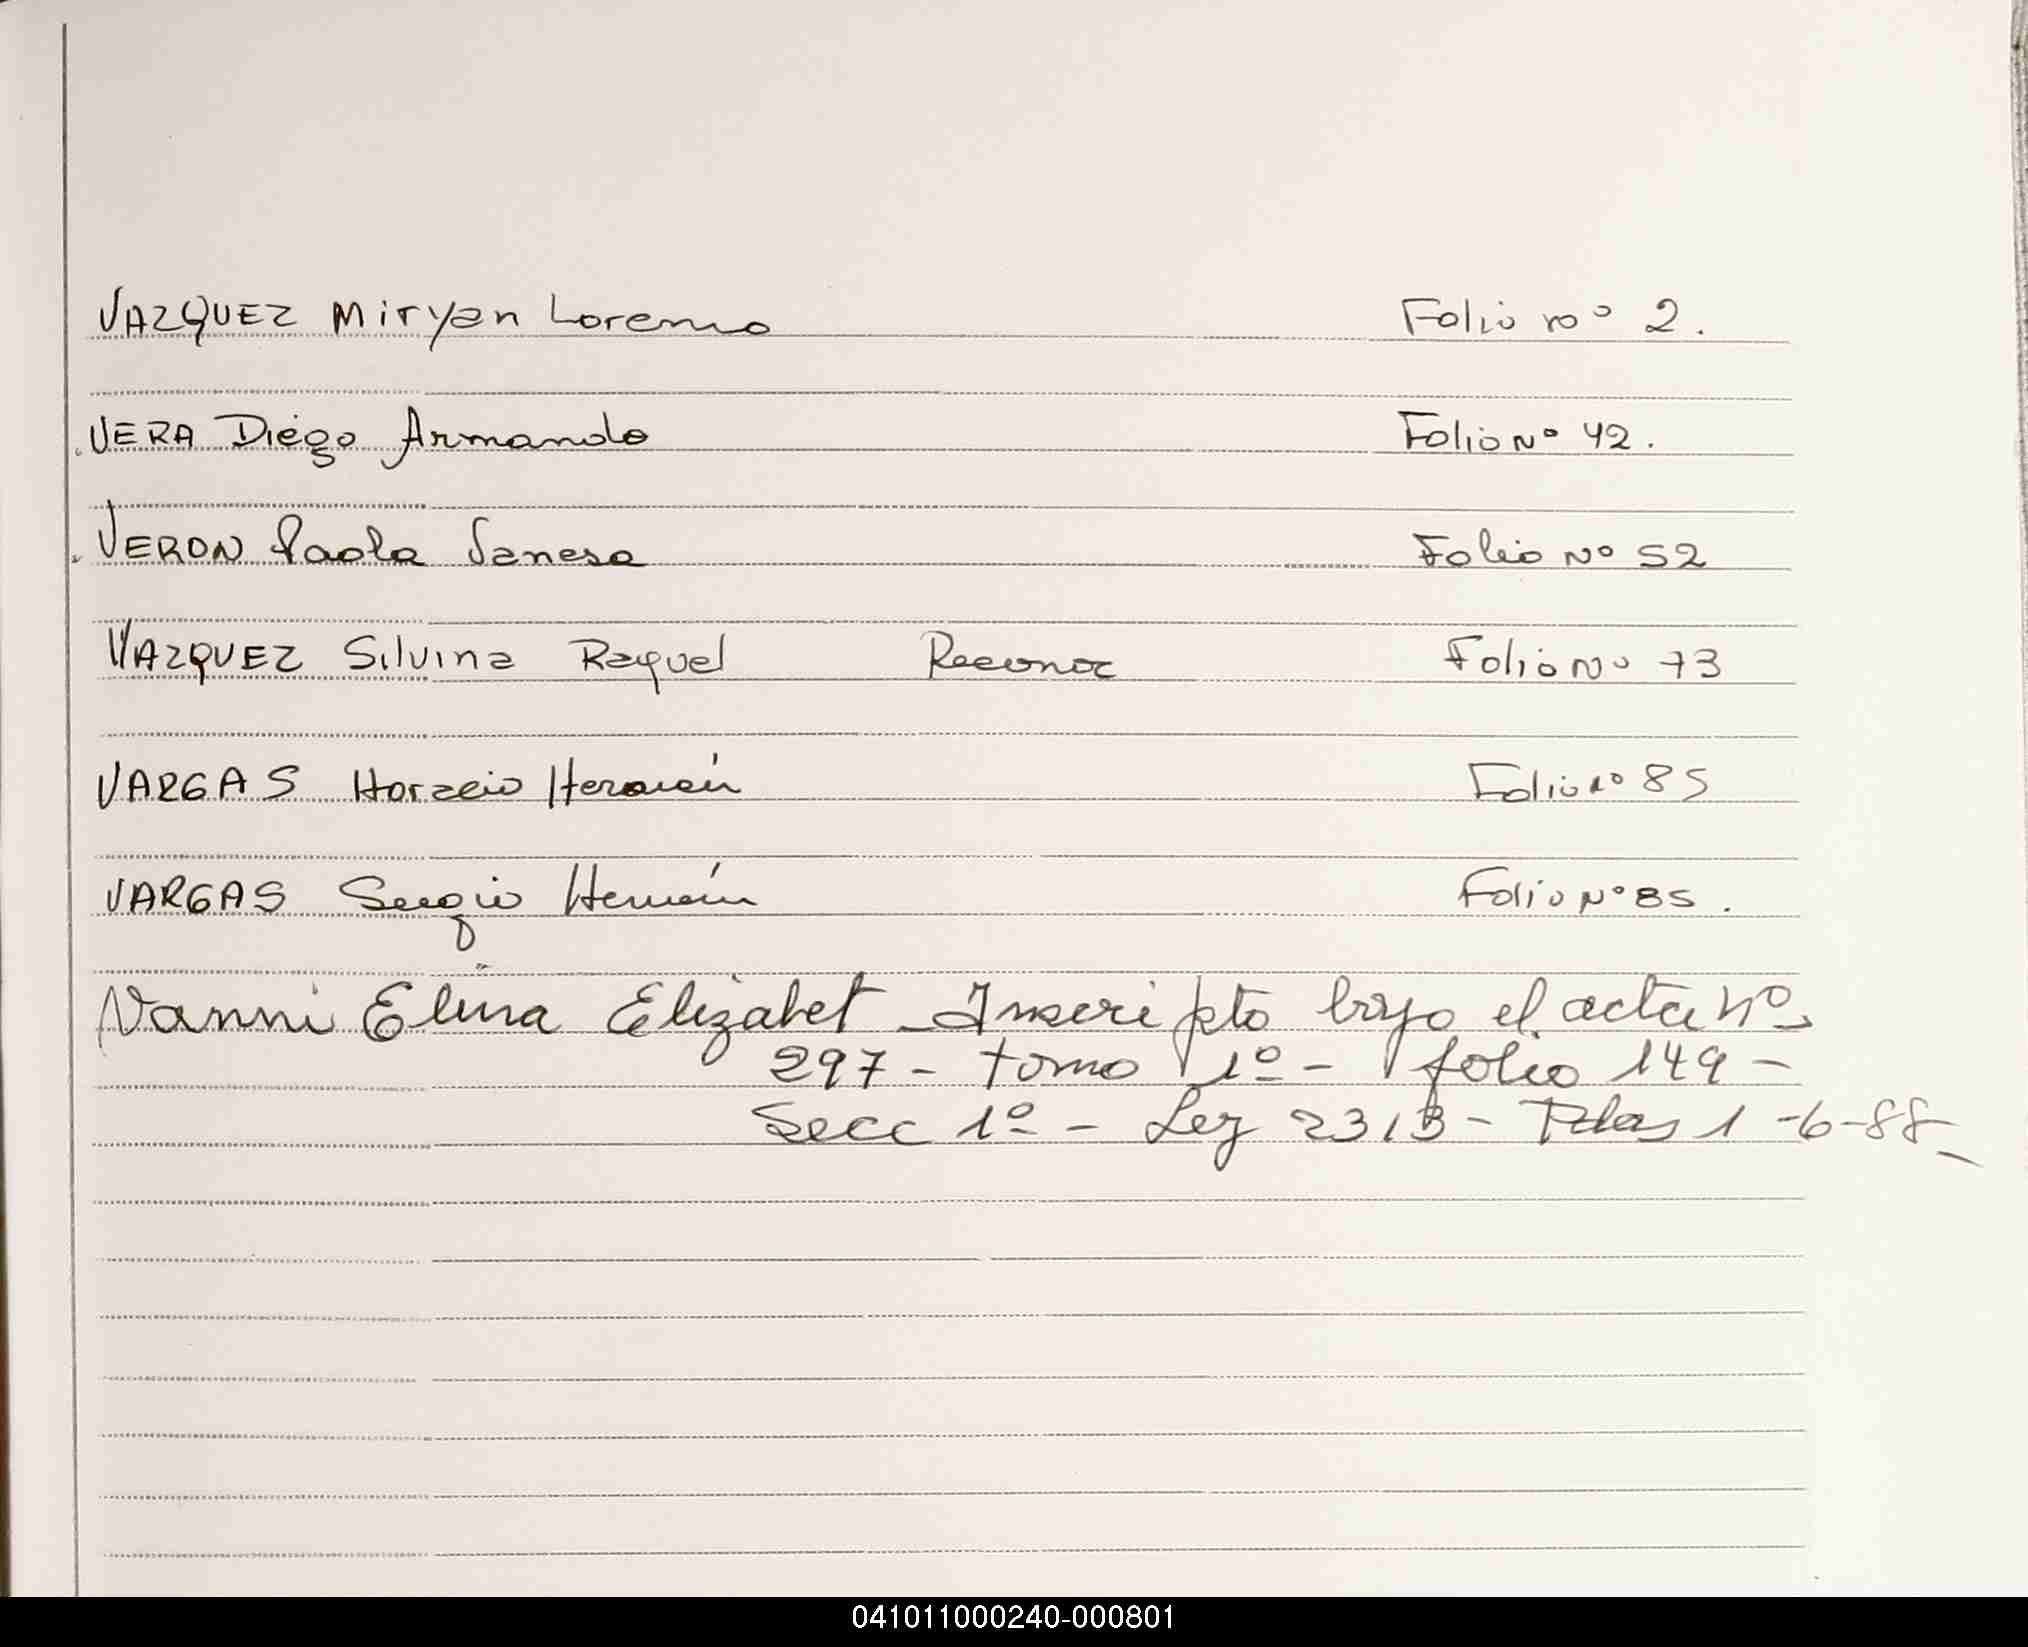 VAZQUEZ Miryan Lorena Folio no 2.
VERA Diego Armando Folio Nº 42.
VERON Paola Vanesa Folio Nº 52
VAZQUEZ Silvina Raquel Reconoc Folio Nº 73
VARGAS Horacio Hernán Folio nº 85
VARGAS Sergio Hernán Folio Nº 85.
Vanni Elina Elizabet - Inscripto bajo el acta nº
297 - tomo 1º - folio 149 -
Secc 1º - Ley 2313 - 1-6-88-
041011000240-000801